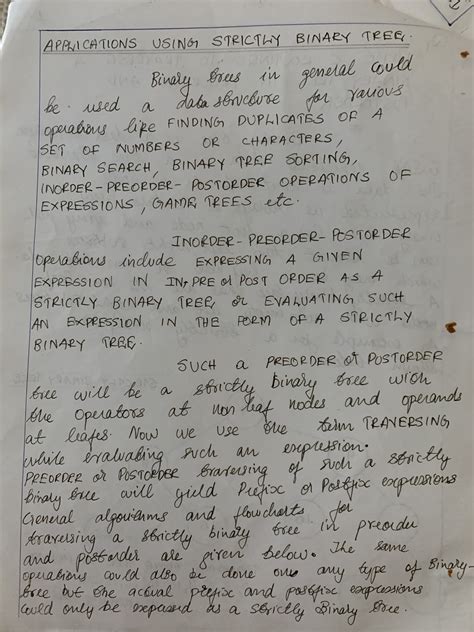 APPLICATIONS USING STRICTLY BINARY TREE.
Binary trees in general could
be used a data structure for various
operations like FINDING DUPLICATES OF A
SET OF NUMBERS OR CHARACTERS,
BINARY SEARCH, BINARY TREE SORTING,
INORDER-PREORDER-POSTORDER OPERATIONS OF
EXPRESSIONS, GAME TREES etc.
INORDER-PREORDER-POSTORDER
Operations include EXPRESSING A GIVEN
EXPRESSION IN IN, PRE or POST ORDER AS A
STRICTLY BINARY TREE, or EVALUATING SUCH
AN EXPRESSION IN THE FORM OF A STRICTLY
BINARY TREE.
SUCH a PREORDER or POSTORDER
tree will be a strictly binary tree with
the operators at non leaf nodes and operands
at leafes. Now we use the term TRAVERSING
while evaluating such an expression.
PREORDER or POSTORDER traversing of such a strictly
binary tree will yield Prefix or Postfix expressions
General algorithms and flowcharts for
traversing a strictly binary tree in preorder
and postorder are given below. The same
operations could also be done on any type of Binary-
tree but the actual prefix and postfix expressions
could only be as a strictly Binary tree.